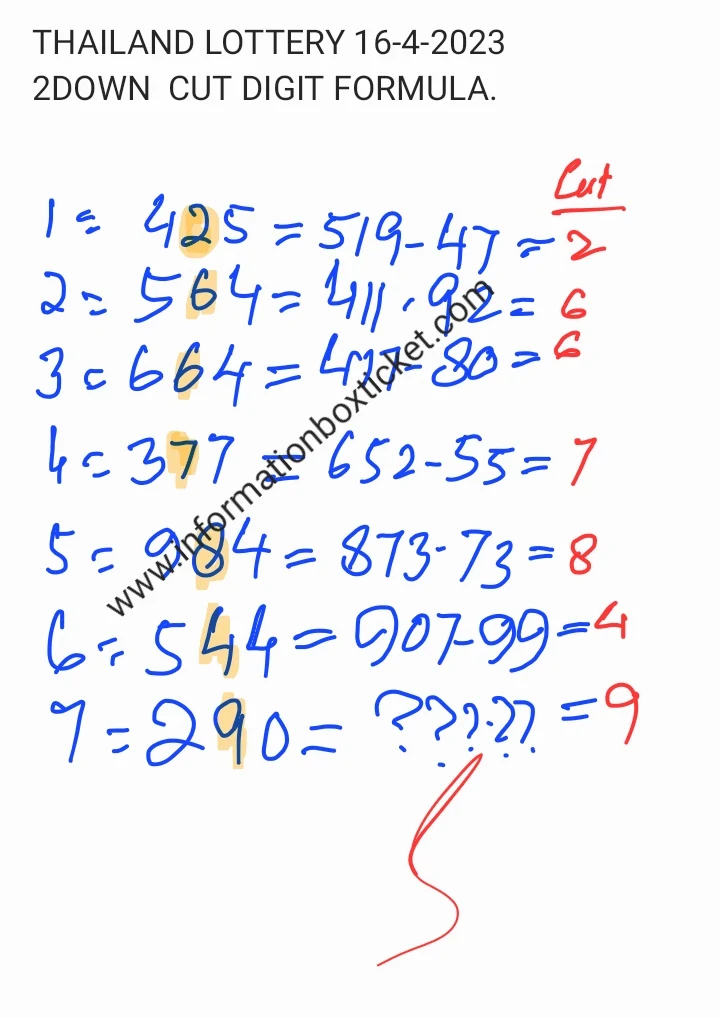 THAILAND LOTTERY 16-4-2023
2DOWN CUT DIGIT FORMULA.
Cut
1 = 425 = 519-47 = 2
2 = 564 = 411-92 = 6
3 = 664 = 417-80 = 6
4 = 377 = 652-55 = 7
5 = 984 = 873-73 = 8
6 = 544 = 907-99 = 4
7 = 290 = ???-?? = 9
www.informationboxticket.com